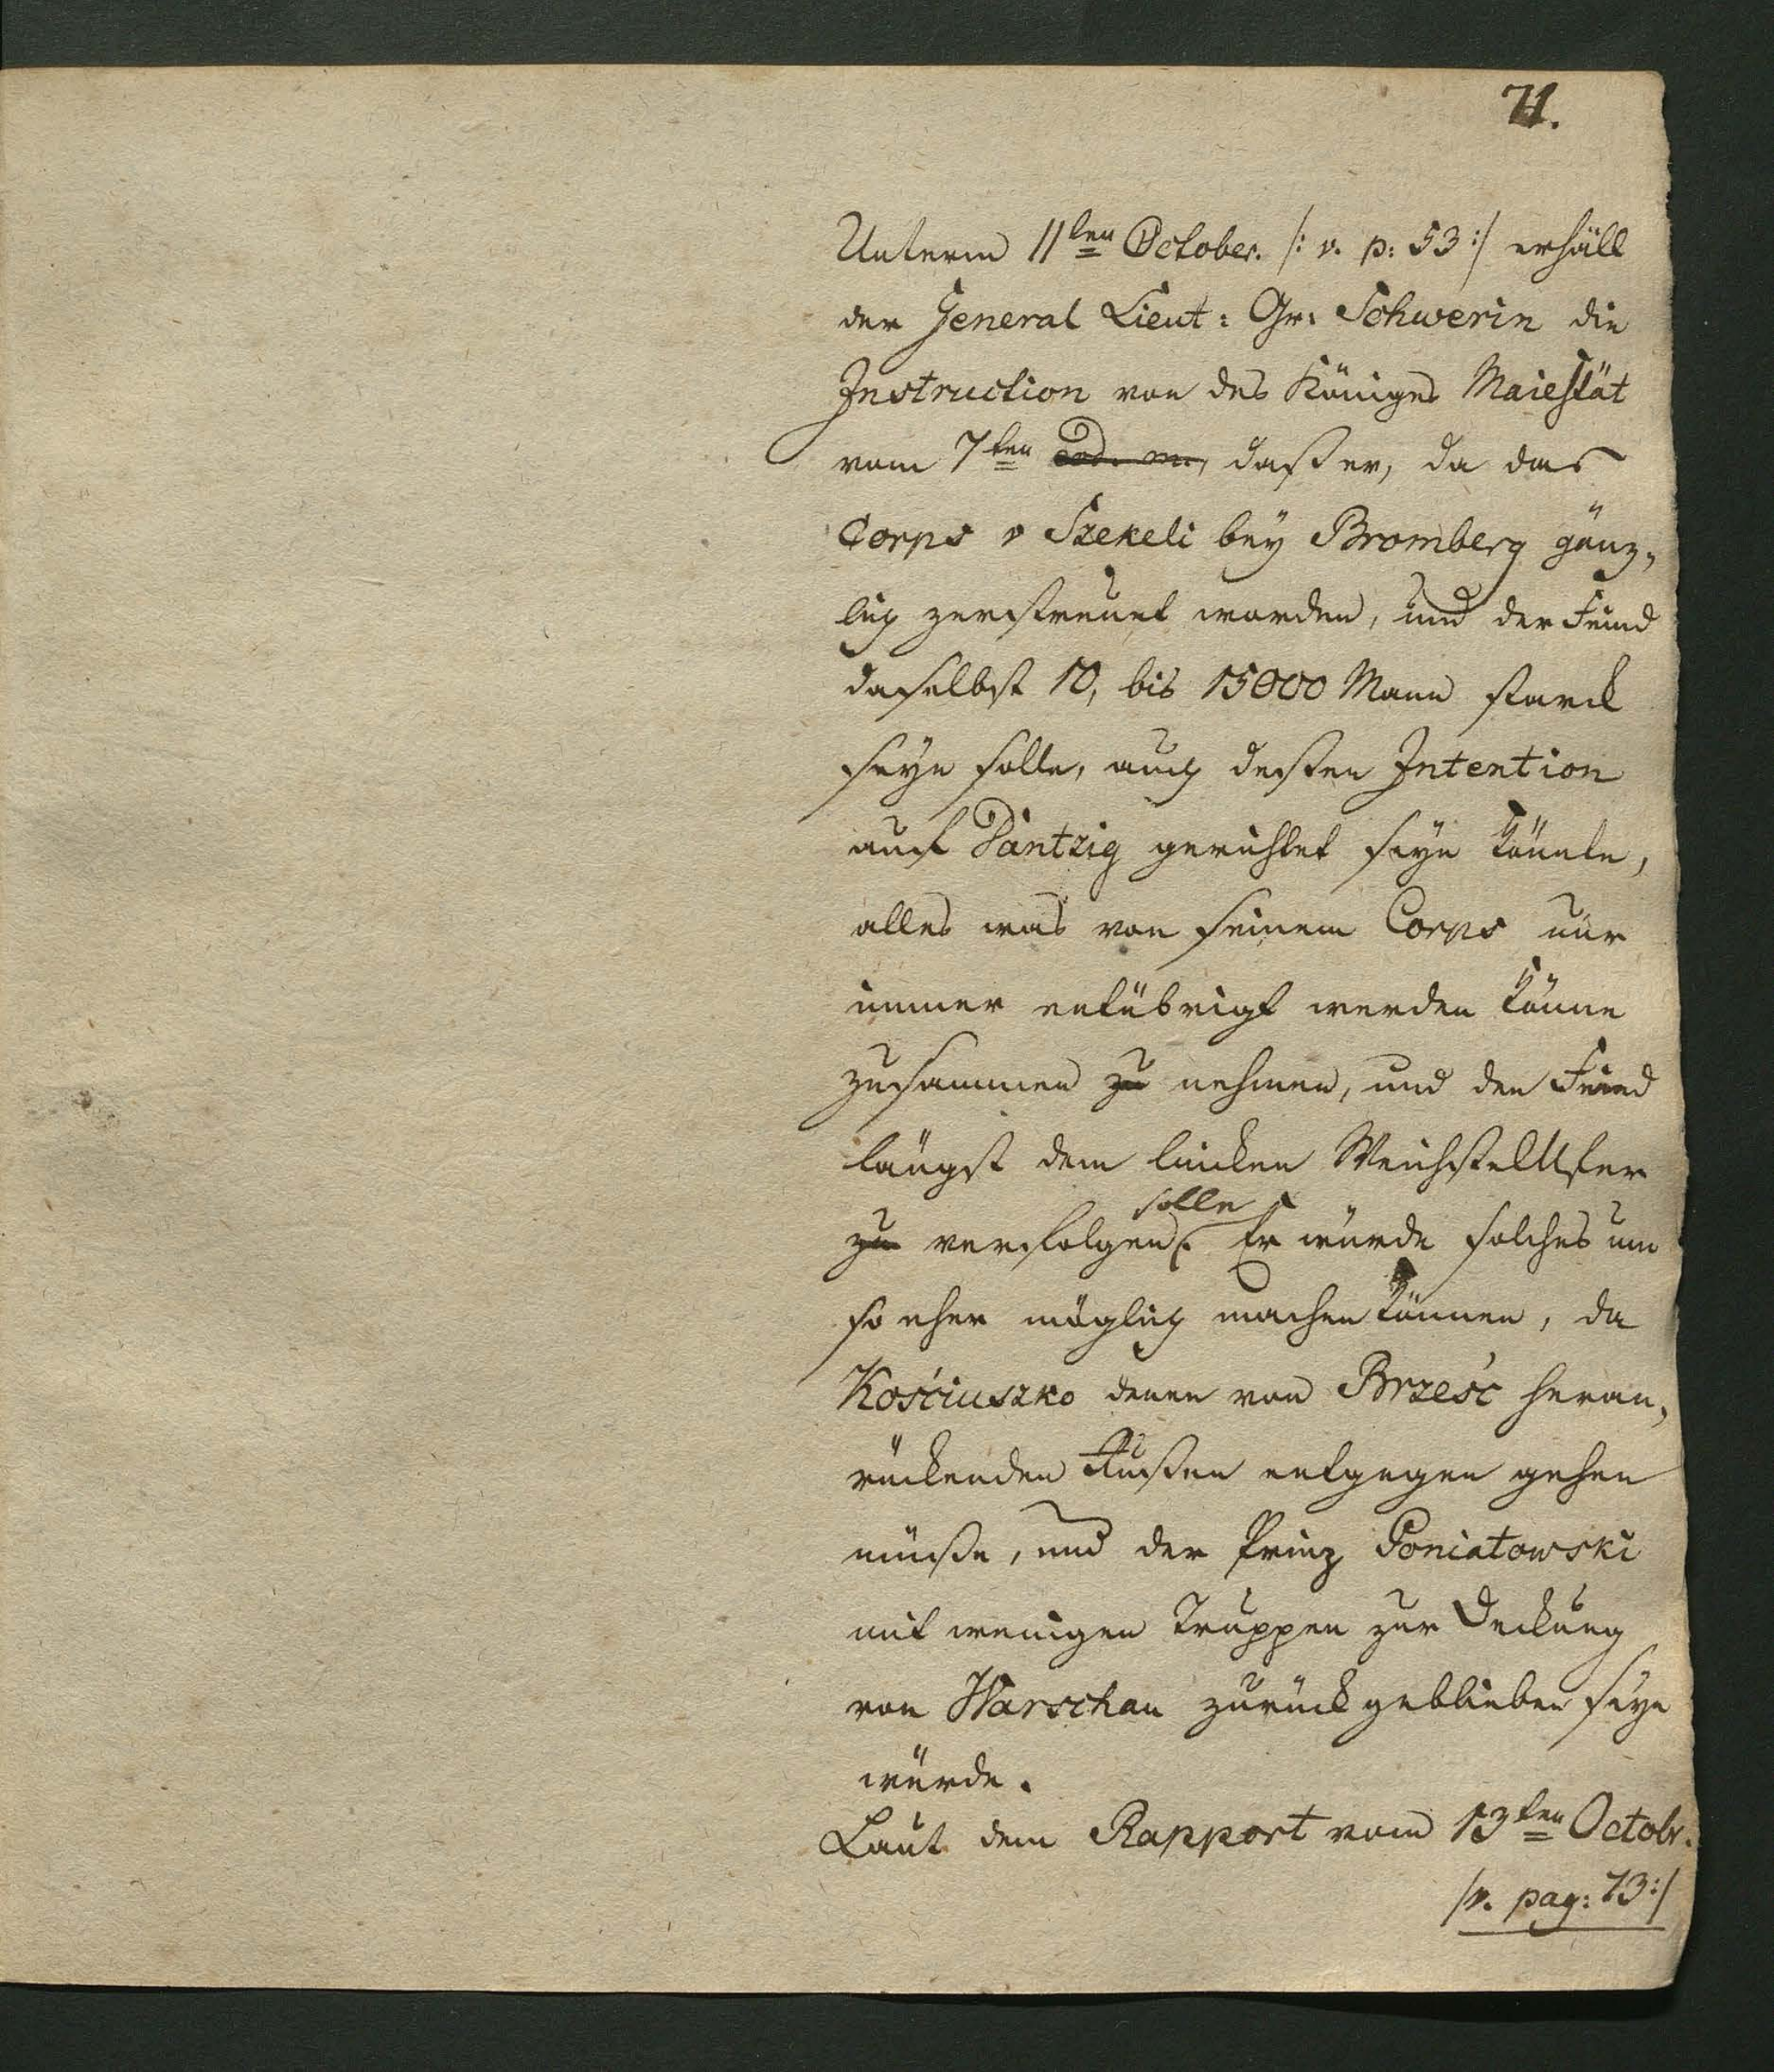 71.
Unterm 11ten October. /: v. p: 53 :/ erhält
der General Lieut: Gr: Schwerin die
Instruction von des Königes Maiestät
vom 7ten eod. m., daß er, da das
Corps v Szekeli bey Bromberg gänz„
lich zerstreuet worden, und der Feind
daselbst 10, bis 15000 Mann starck
seyn solle, auch dessen Intention
auf Dantzig gerichtet seyn könnte,
alles was von seinem Corps nur
immer entübrigt werden könne
zusammen zu nehmen, und den Feind
längst dem lincken WeichselUfer
solle
zu verfolgen. Er würde solches um
so eher möglich machen können, da
Kośćiuszko denen von Brześć heran„
rückenden Rußen entgegen gehen
müße, und der Prinz Poniatowski
mit wenigen Truppen zur Deckung
von Warschau zurück geblieben seyn
würde.
Laut dem Rapport vom 13ten Octobr.
/v. pag: 73:/